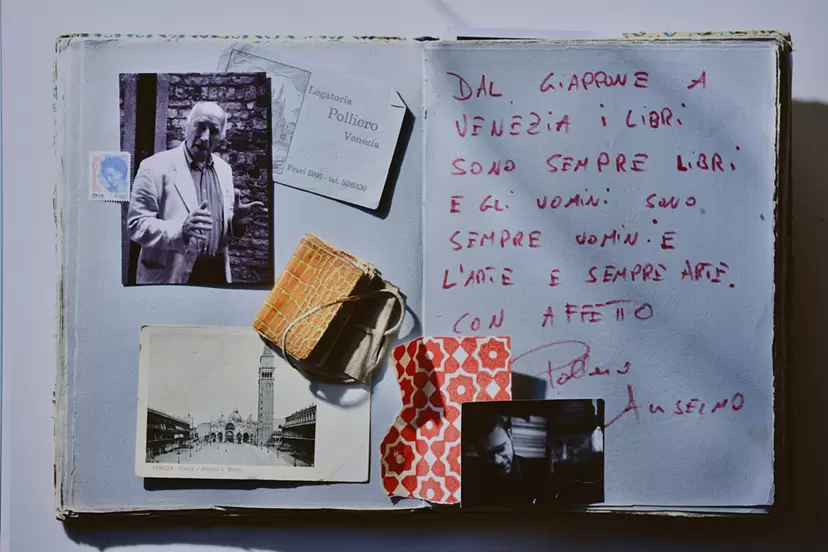 Legatoria
Polliero
Venezia
Frari 2995 - tel. 5285130
VENEZIA - Piazza e Basilica S. Marco.
DAL GIAPPONE A
VENEZIA I LIBRI
SONO SEMPRE LIBRI
E GLI UOMINI SONO
SEMPRE UOMINI E
L'ARTE E SEMPRE ARTE.
CON AFFETTO
Polliero
ANSELMO